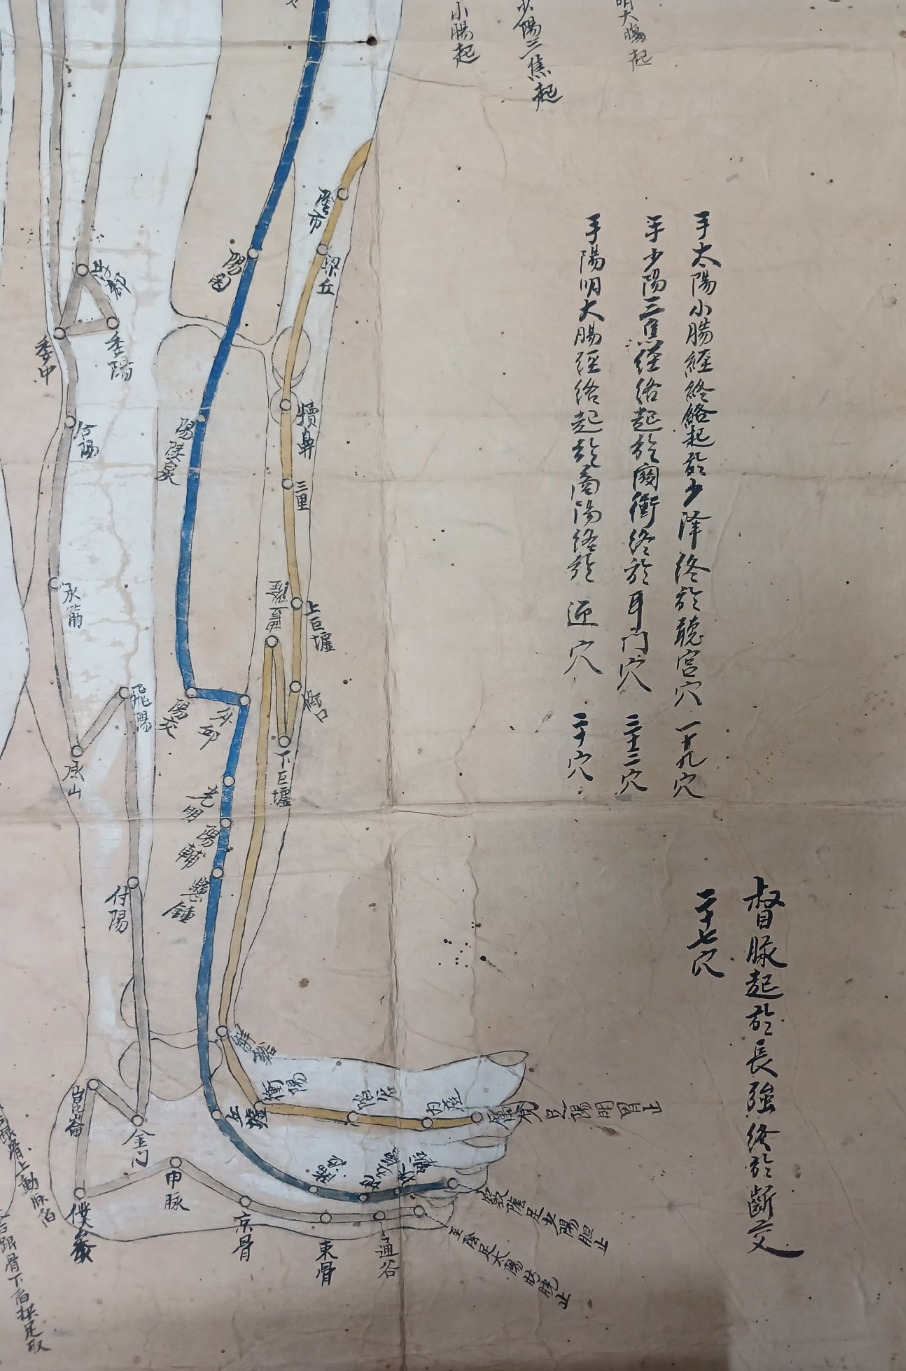 小腸起
少陽三焦起
明大腸起
手太陽小腸經終絡起於少降終於聽宮穴 一十九穴
手少陽三焦經絡起於関衝終於耳门穴 二十三穴
手陽明大腸經絡起於商陽終於迎穴 二十穴
督脉起於長強終於斷交
二十七穴
陰市
梁丘
陽関
委陽
委中
合陽
犢鼻
陽陵泉
三里
承筋
上巨墟
飛陽
陽交
承山
下巨墟
光明
陽輔
懸鍾
付陽
解谿
衝陽
陷谷
内庭
足陽明胃止
丘墟
崑崙
金门
申脉
僕參
京骨
束骨
通谷
足少陽胆止
至陰足太陽膀胱止